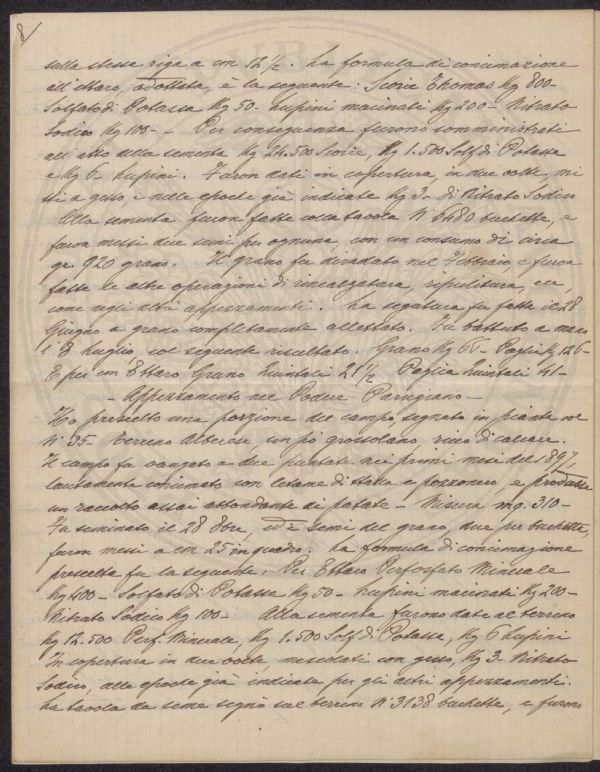 8/
sulla stessa riga a cm 12 1/2. La formula di concimazione
all'ettaro, adottata, è la seguente: Scorie Thomas Kg 800-
Solfato di Potassa Kg 50- Lupini macinati Kg 200- Nitrato
Sodico Kg 100-- Per conseguenza furono somministrati
all'atto della sementa Kg 24.500 Scorie, Kg 1.500 Solf. di Potassa
e Kg 6 Lupini. Furon dati in copertura, in due volte, mi
sti a gesso, e nelle epoche già indicate Kg 3- di Nitrato Sodico
Alla sementa furon fatte colla tavola N° 6480 buchette, e
furon messi due semi per ognuna, con un consumo di circa
gr. 920 grano. Il grano fu diradato nel Febbraio e furon
fatte le altre operazioni di rincalzatura, ripulitura, ecc,
come negli altri appezzamenti. La segatura fu fatta il 28
Giugno a grano completamente allettato. Fu battuto a mano
l'8 Luglio, col seguente risultato. Grano Kg 66- Paglia Kg 126-
E per un Ettaro Grano Quintali 21 1/2 Paglia Quintali 41-
- Appezzamento nel Podere Parugiano -
Ho prescelto una porzione del campo segnato in pianta col
N° 35- Terreno Alberese, un pò grossolano, ricco di calcare.
Il campo fu vangato a due puntate nei primi mesi del 1897,
lautamente concimato con letame di stalla e pozzonero, e produsse
un raccolto assai abbondante di patate - Misura mq. 310-
Fu seminato il 28 8bre, ed i semi del grano, due per buchetta,
furon messi a cm 25 in quadro. La formula di concimazione
prescelta fu la seguente: Per Ettaro Perfosfato Minerale
Kg 400- Solfato di Potassa Kg 50- Lupini macinati Kg 200-
Nitrato Sodico Kg 100- Alla sementa furono date al terreno
Kg 12.500 Perf. Minerale, Kg 1.500 Solf. di Potassa, Kg 6 Lupini
In copertura in due volte mescolati con gesso, Kg 3- Nitrato
Sodico, alle epoche già indicate per gli altri appezzamenti.
La tavola da seme segnò sul terreno N° 3138 buchette, e furono